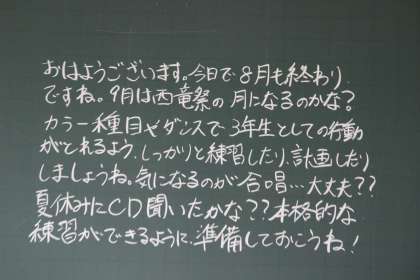 おはようございます。今日で8月も終わり
ですね。9月は西竜祭の月になるのかな?
カラー種目やダンスで3年生としての行動
がとれるよう、しっかりと練習したり、計画したり
しましょうね。気になるのが合唱…大丈夫??
夏休みにCD聞いたかな??本格的な
練習ができるように、準備しておこうね!